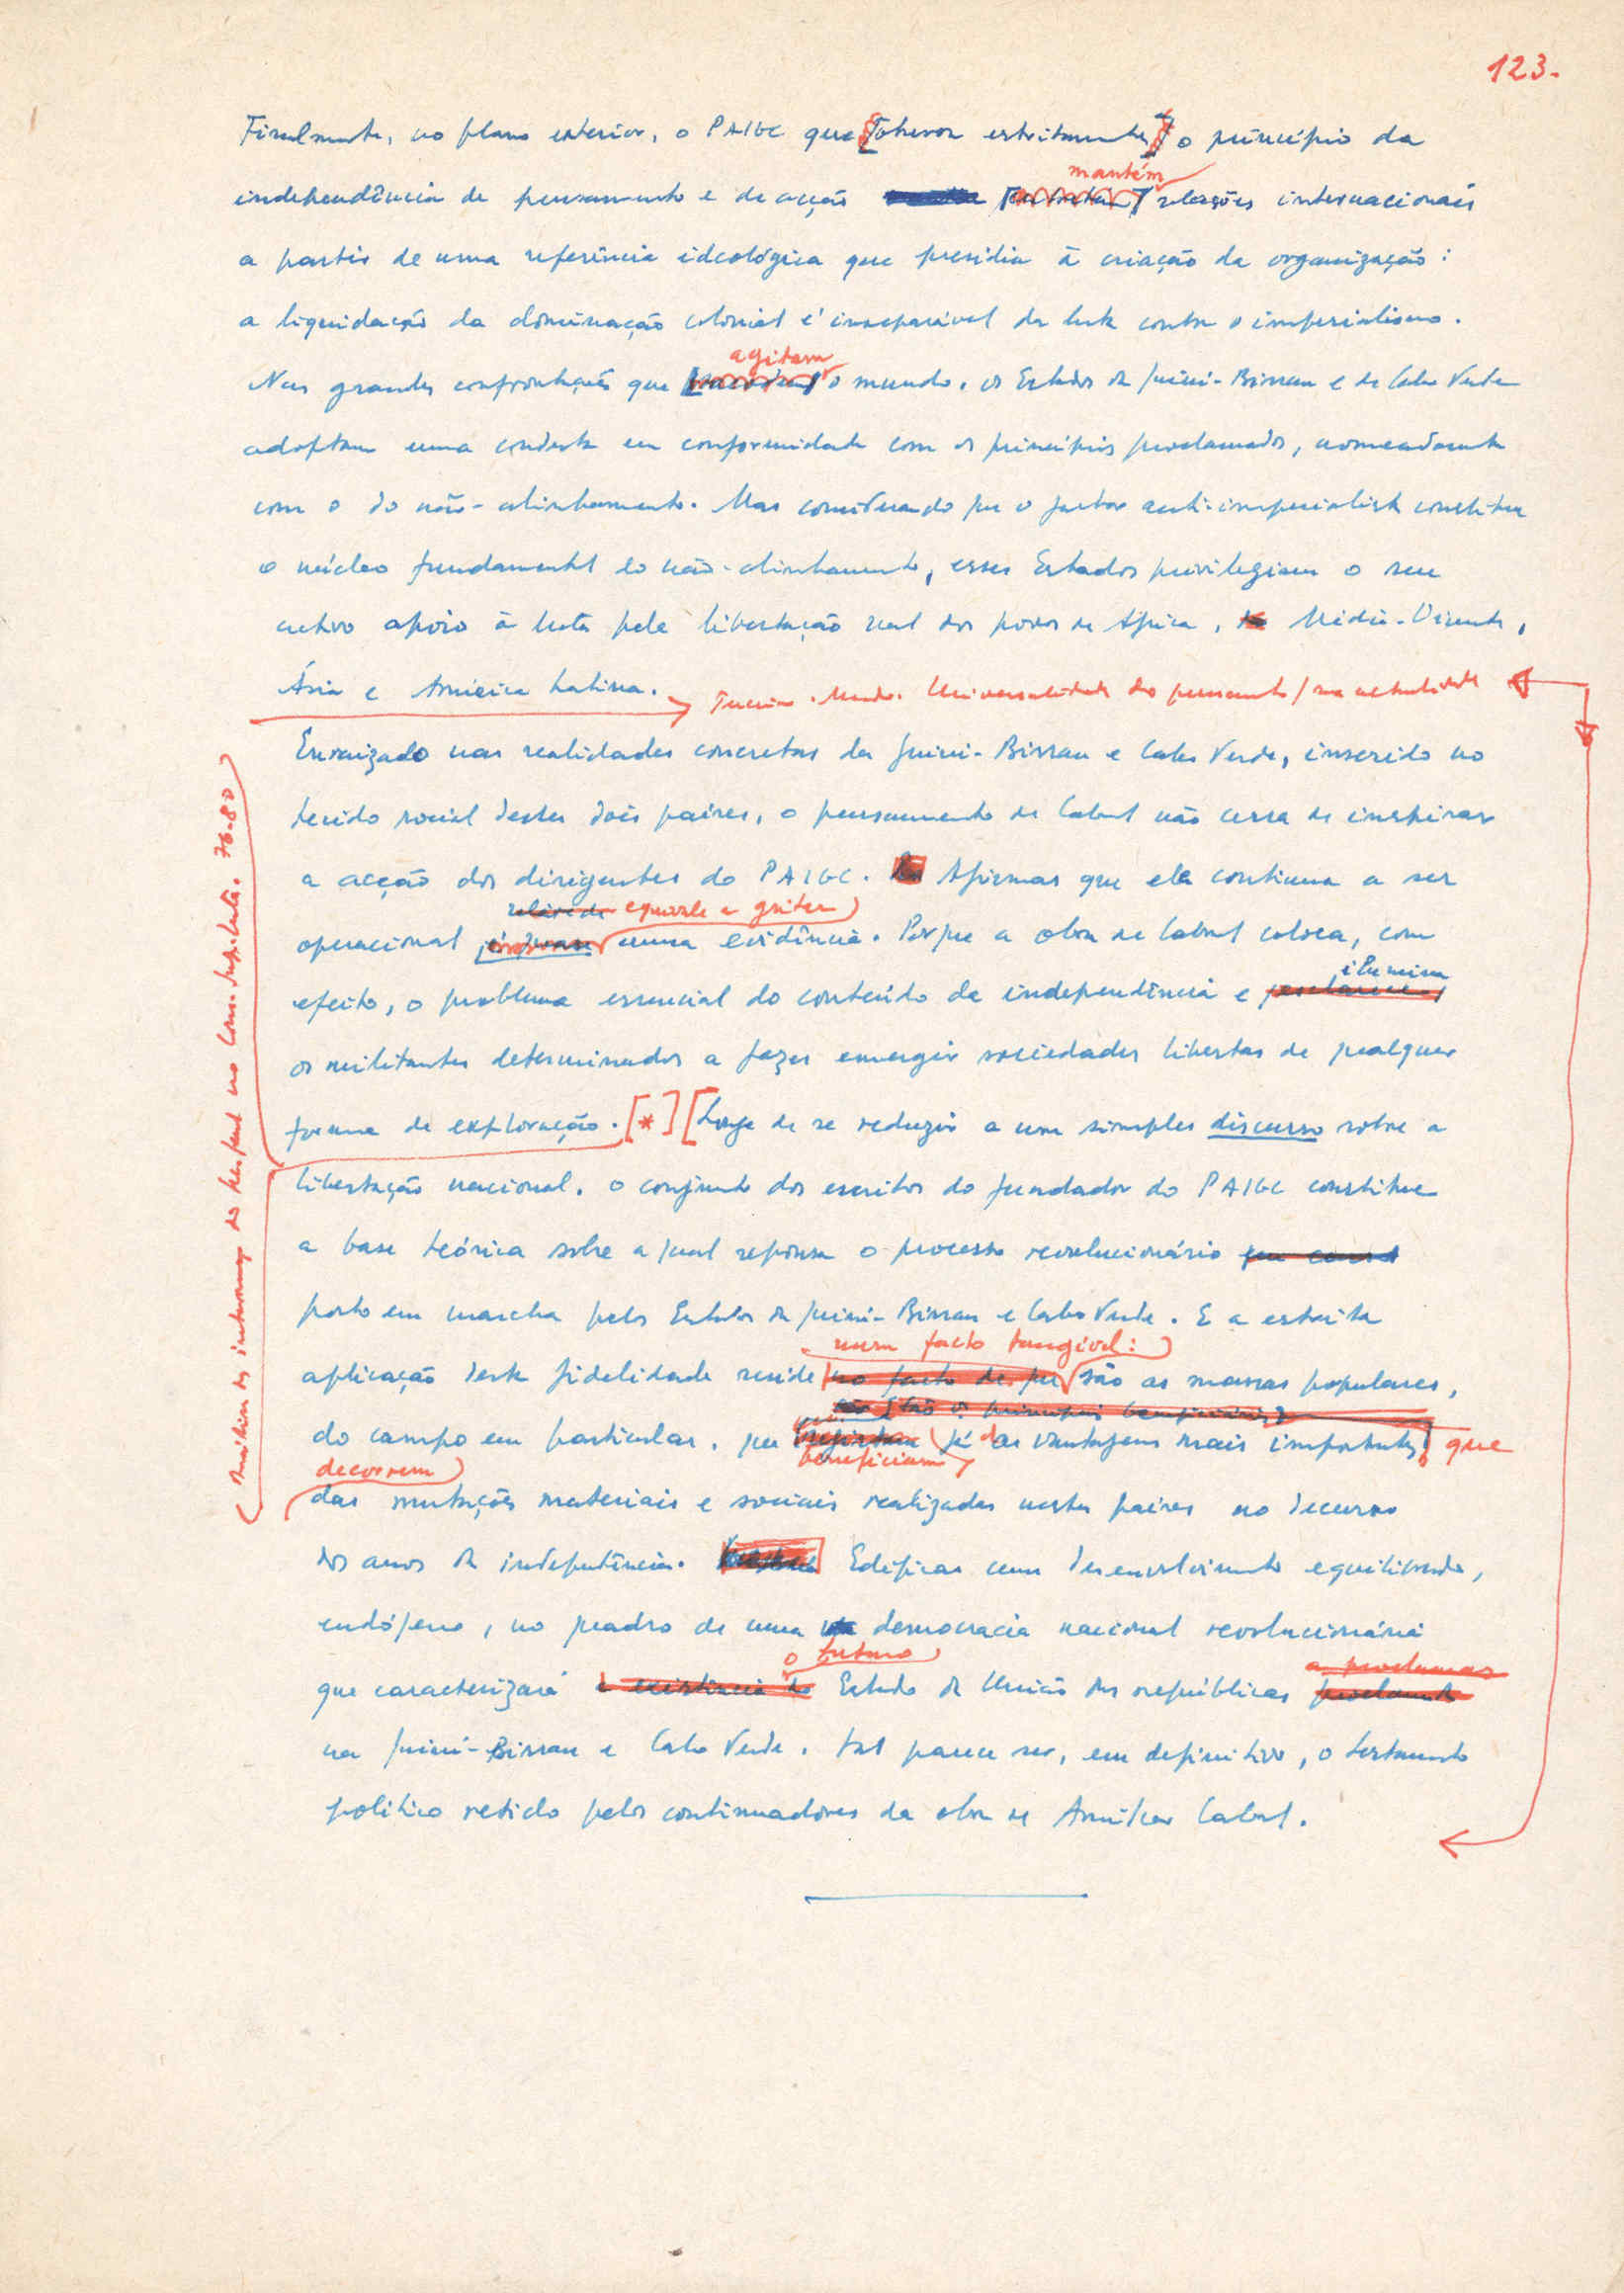 123.
Finalmente, no plano exterior, o PAIGC que [observa estritamente] o princípio da
mantém
independência de pensamento e de acção relações internacionais
a partir de uma referência ideológica que presidiu à criação da organização:
a liquidação da dominação colonial é inseparável da luta contra o imperialismo.
agitam
Nas grandes confrontações que o mundo, os Estados da Guiné-Bissau e de Cabo Verde
adoptam uma conduta em conformidade com os princípios proclamados, nomeadamente
com o do não-alinhamento. Mas considerando que o factor anti-imperialista constitui
o núcleo fundamental do não-alinhamento, esses Estados privilegiam o seu
activo apoio à luta pela libertação real dos povos de África, Médio-Oriente,
Ásia e América Latina. Terceiro-Mundo. Universalidade do pensamento / sua actualidade
Enraizado nas realidades concretas da Guiné-Bissau e Cabo Verde, inserido no
tecido social destes dois países, o pensamento de Cabral não cessa de inspirar
a acção dos dirigentes do PAIGC. Afirmar que ela continua a ser
equivale a gritar
operacional uma evidência. Porque a obra de Cabral coloca, com
ilumina
efeito, o problema essencial do conteúdo da independência e
os militantes determinados a fazer emergir sociedades libertas de qualquer
forma de exploração. [*] [Longe de se reduzir a um simples discurso sobre a
libertação nacional, o conjunto dos escritos do fundador do PAIGC constitue
a base teórica sobre a qual repousa o processo revolucionário
posto em marcha pelos Estados da Guiné-Bissau e Cabo Verde. E a estrita
num facto tangível:
aplicação desta fidelidade reside no facto de que são as massas populares,
são [são os principais beneficiários]
do campo em particular, que já das vantagens mais importantes que
beneficiam
decorrem
das mutações materiais e sociais realizadas nestes países no decurso
dos anos da independência. Edificar um desenvolvimento equilibrado,
endógeno, no quadro de uma democracia nacional revolucionária
o futuro
a proclamar
que caracterizará a existência do Estado da União das repúblicas
na Guiné-Bissau e Cabo Verde, tal parece ser, em definitivo, o testamento
político retido pelos continuadores da obra de Amílcar Cabral.
76-80